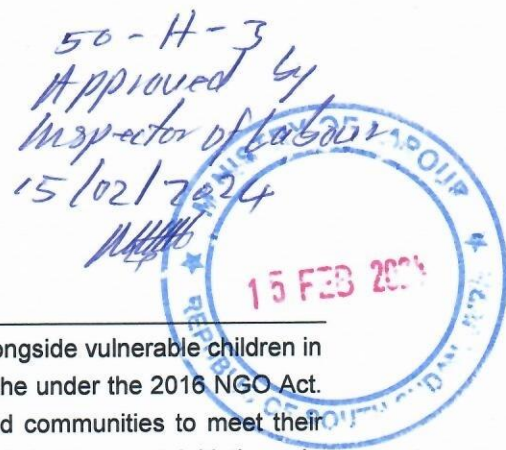 50-H-3
Approved by
Inspector of Labour
15/02/2024
MINISTRY OF LABOUR
15 FEB 2024
REPUBLIC OF SOUTH SUDAN
ongside vulnerable children in
he under the 2016 NGO Act.
d communities to meet their